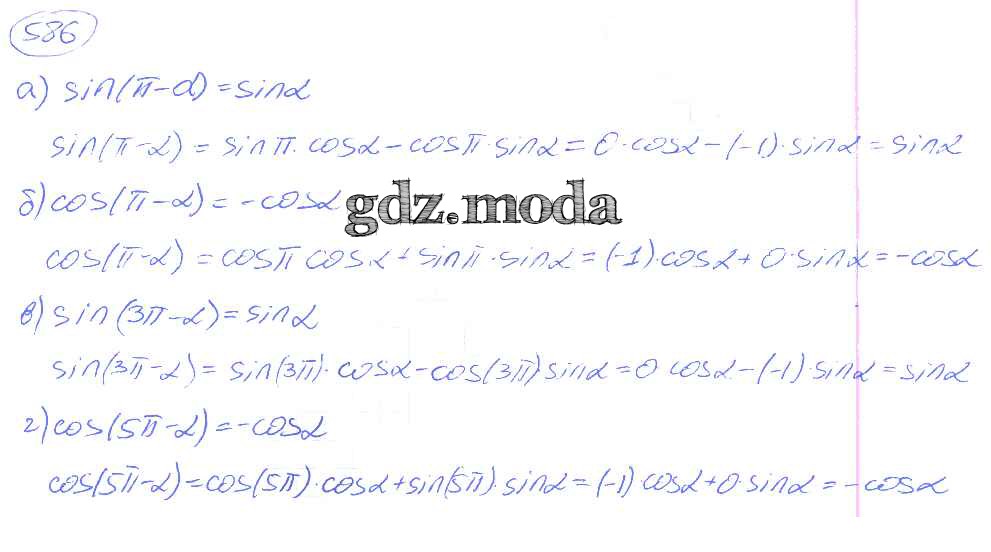 586
а) sin(π-α) = sinα
sin(π-α) = sinπ·cosα - cosπ·sinα = 0·cosα - (-1)·sinα = sinα
б) cos(π-α) = -cosα
gdz.moda
cos(π-α) = cosπ cosα + sinπ·sinα = (-1)·cosα + 0·sinα = -cosα
в) sin(3π-α) = sinα
sin(3π-α) = sin(3π)·cosα - cos(3π) sinα = 0 cosα - (-1)·sinα = sinα
г) cos(5π-α) = -cosα
cos(5π-α) = cos(5π)·cosα + sin(5π)·sinα = (-1) cosα + 0·sinα = -cosα